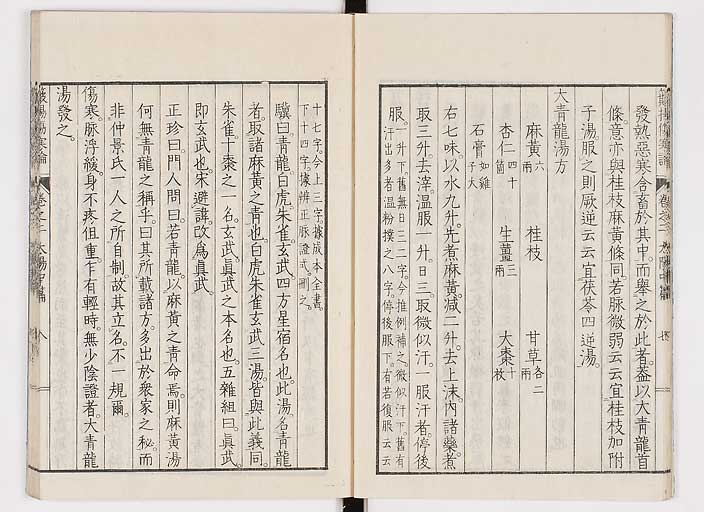 發熱惡寒含畜於其中而舉之於此者蓋以大青龍首
條意亦與桂枝麻黃條同若脉微弱云云宜桂枝加附
子湯服之則厥逆云云宜茯苓四逆湯
大青龍湯方
麻黃六兩 桂枝 甘草各二兩
杏仁四十箇 生薑三兩 大棗十枚
石膏如雞子大
右七味以水九升先煮麻黃減二升去上沫内諸藥煮
取三升去滓溫服一升日三取微似汗一服汗者停後
服一升下舊無日三二字今推例補之微似汗下舊有
汗出多者溫粉撲之八字停後服下有若復服云云
十七字今上三字據成本全書
下十四字據辨正脉證式刪之
驥曰青龍白虎朱雀玄武四方星宿名也此湯名青龍
者取諸麻黃之青也白虎朱雀玄武三湯皆與此義同
朱雀十棗之一名玄武眞武之本名也五雜組曰眞武
即玄武也宋避諱改爲眞武
正珍曰門人問曰若青龍以麻黃之青命焉則麻黃湯
何無青龍之稱乎曰其所載諸方多出於衆家之秘而
非仲景氏一人之所自制故其立名不一規爾
傷寒脉浮緩身不疼但重乍有輕時無少陰證者大青龍
湯發之
傷寒論 卷之二 太陽中篇 八